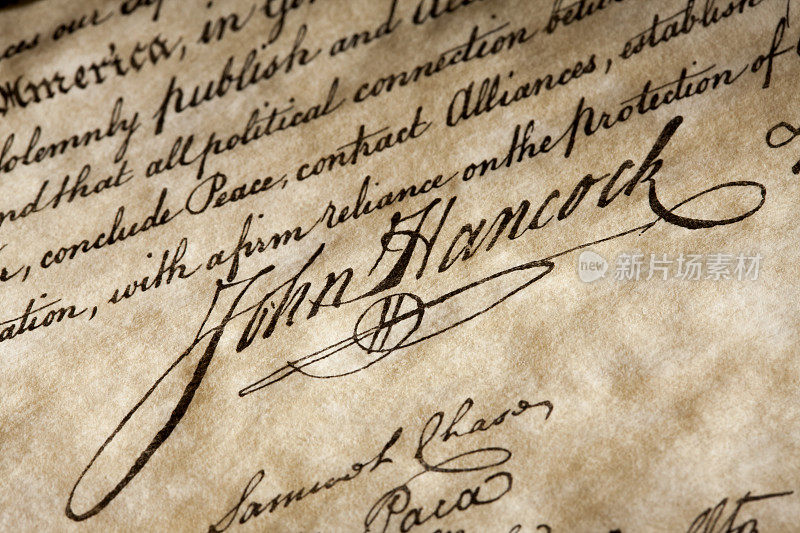 America, in
solemnly publish and
and that all political connection
, conclude Peace, contract Alliances, establish
ation, with a firm reliance on the protection of
John Hancock
new 新图网商用
Samuel Chase
Paca